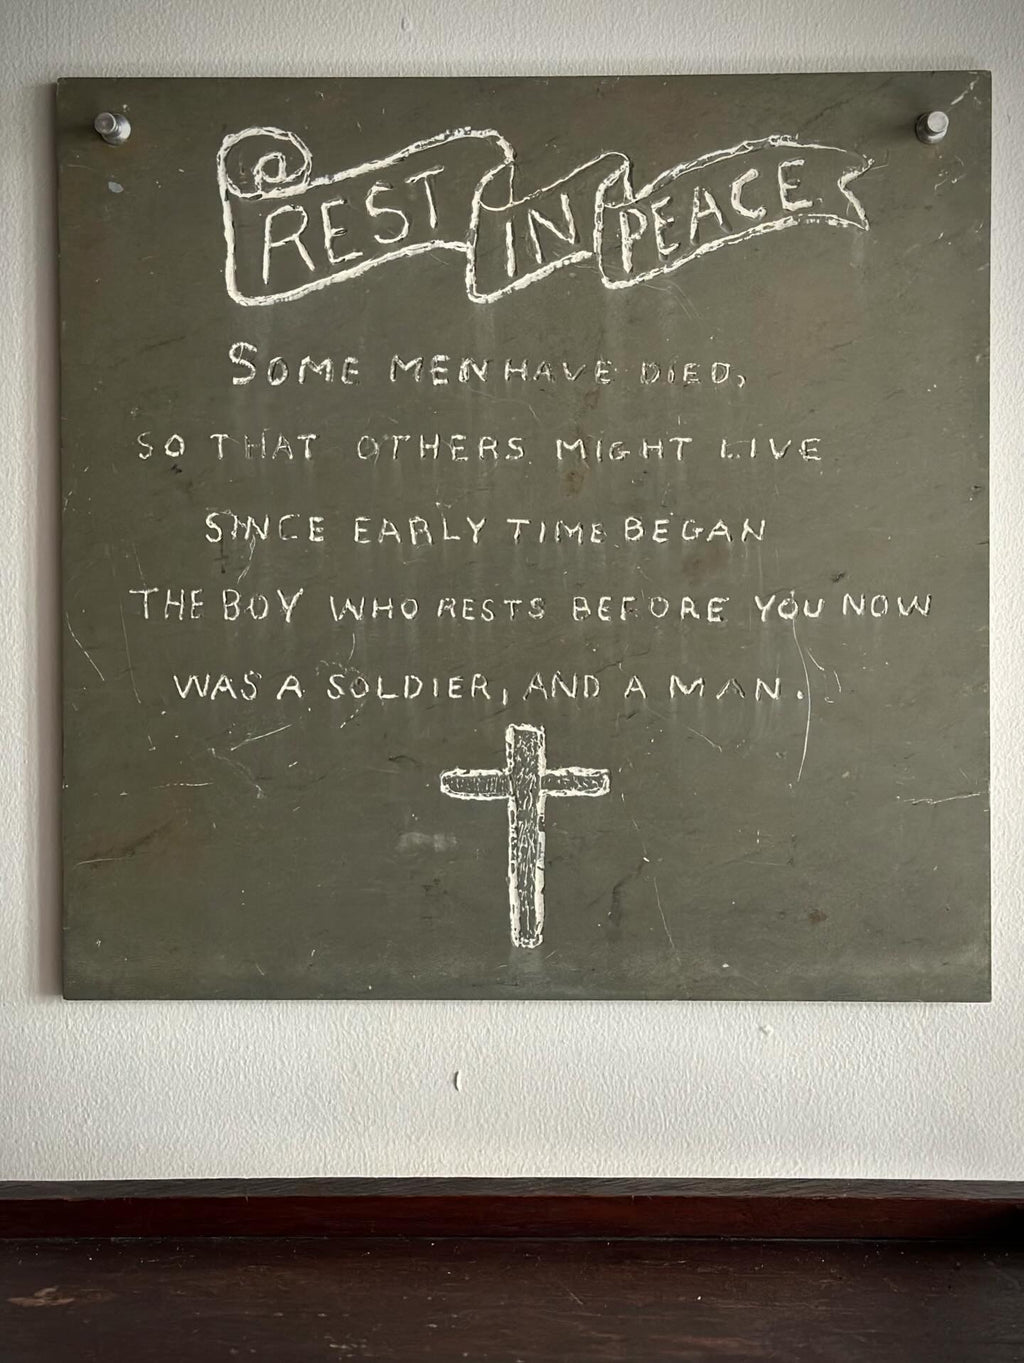 REST IN PEACE
SOME MEN HAVE DIED,
SO THAT OTHERS MIGHT LIVE
SINCE EARLY TIME BEGAN
THE BOY WHO RESTS BEFORE YOU NOW
WAS A SOLDIER, AND A MAN.